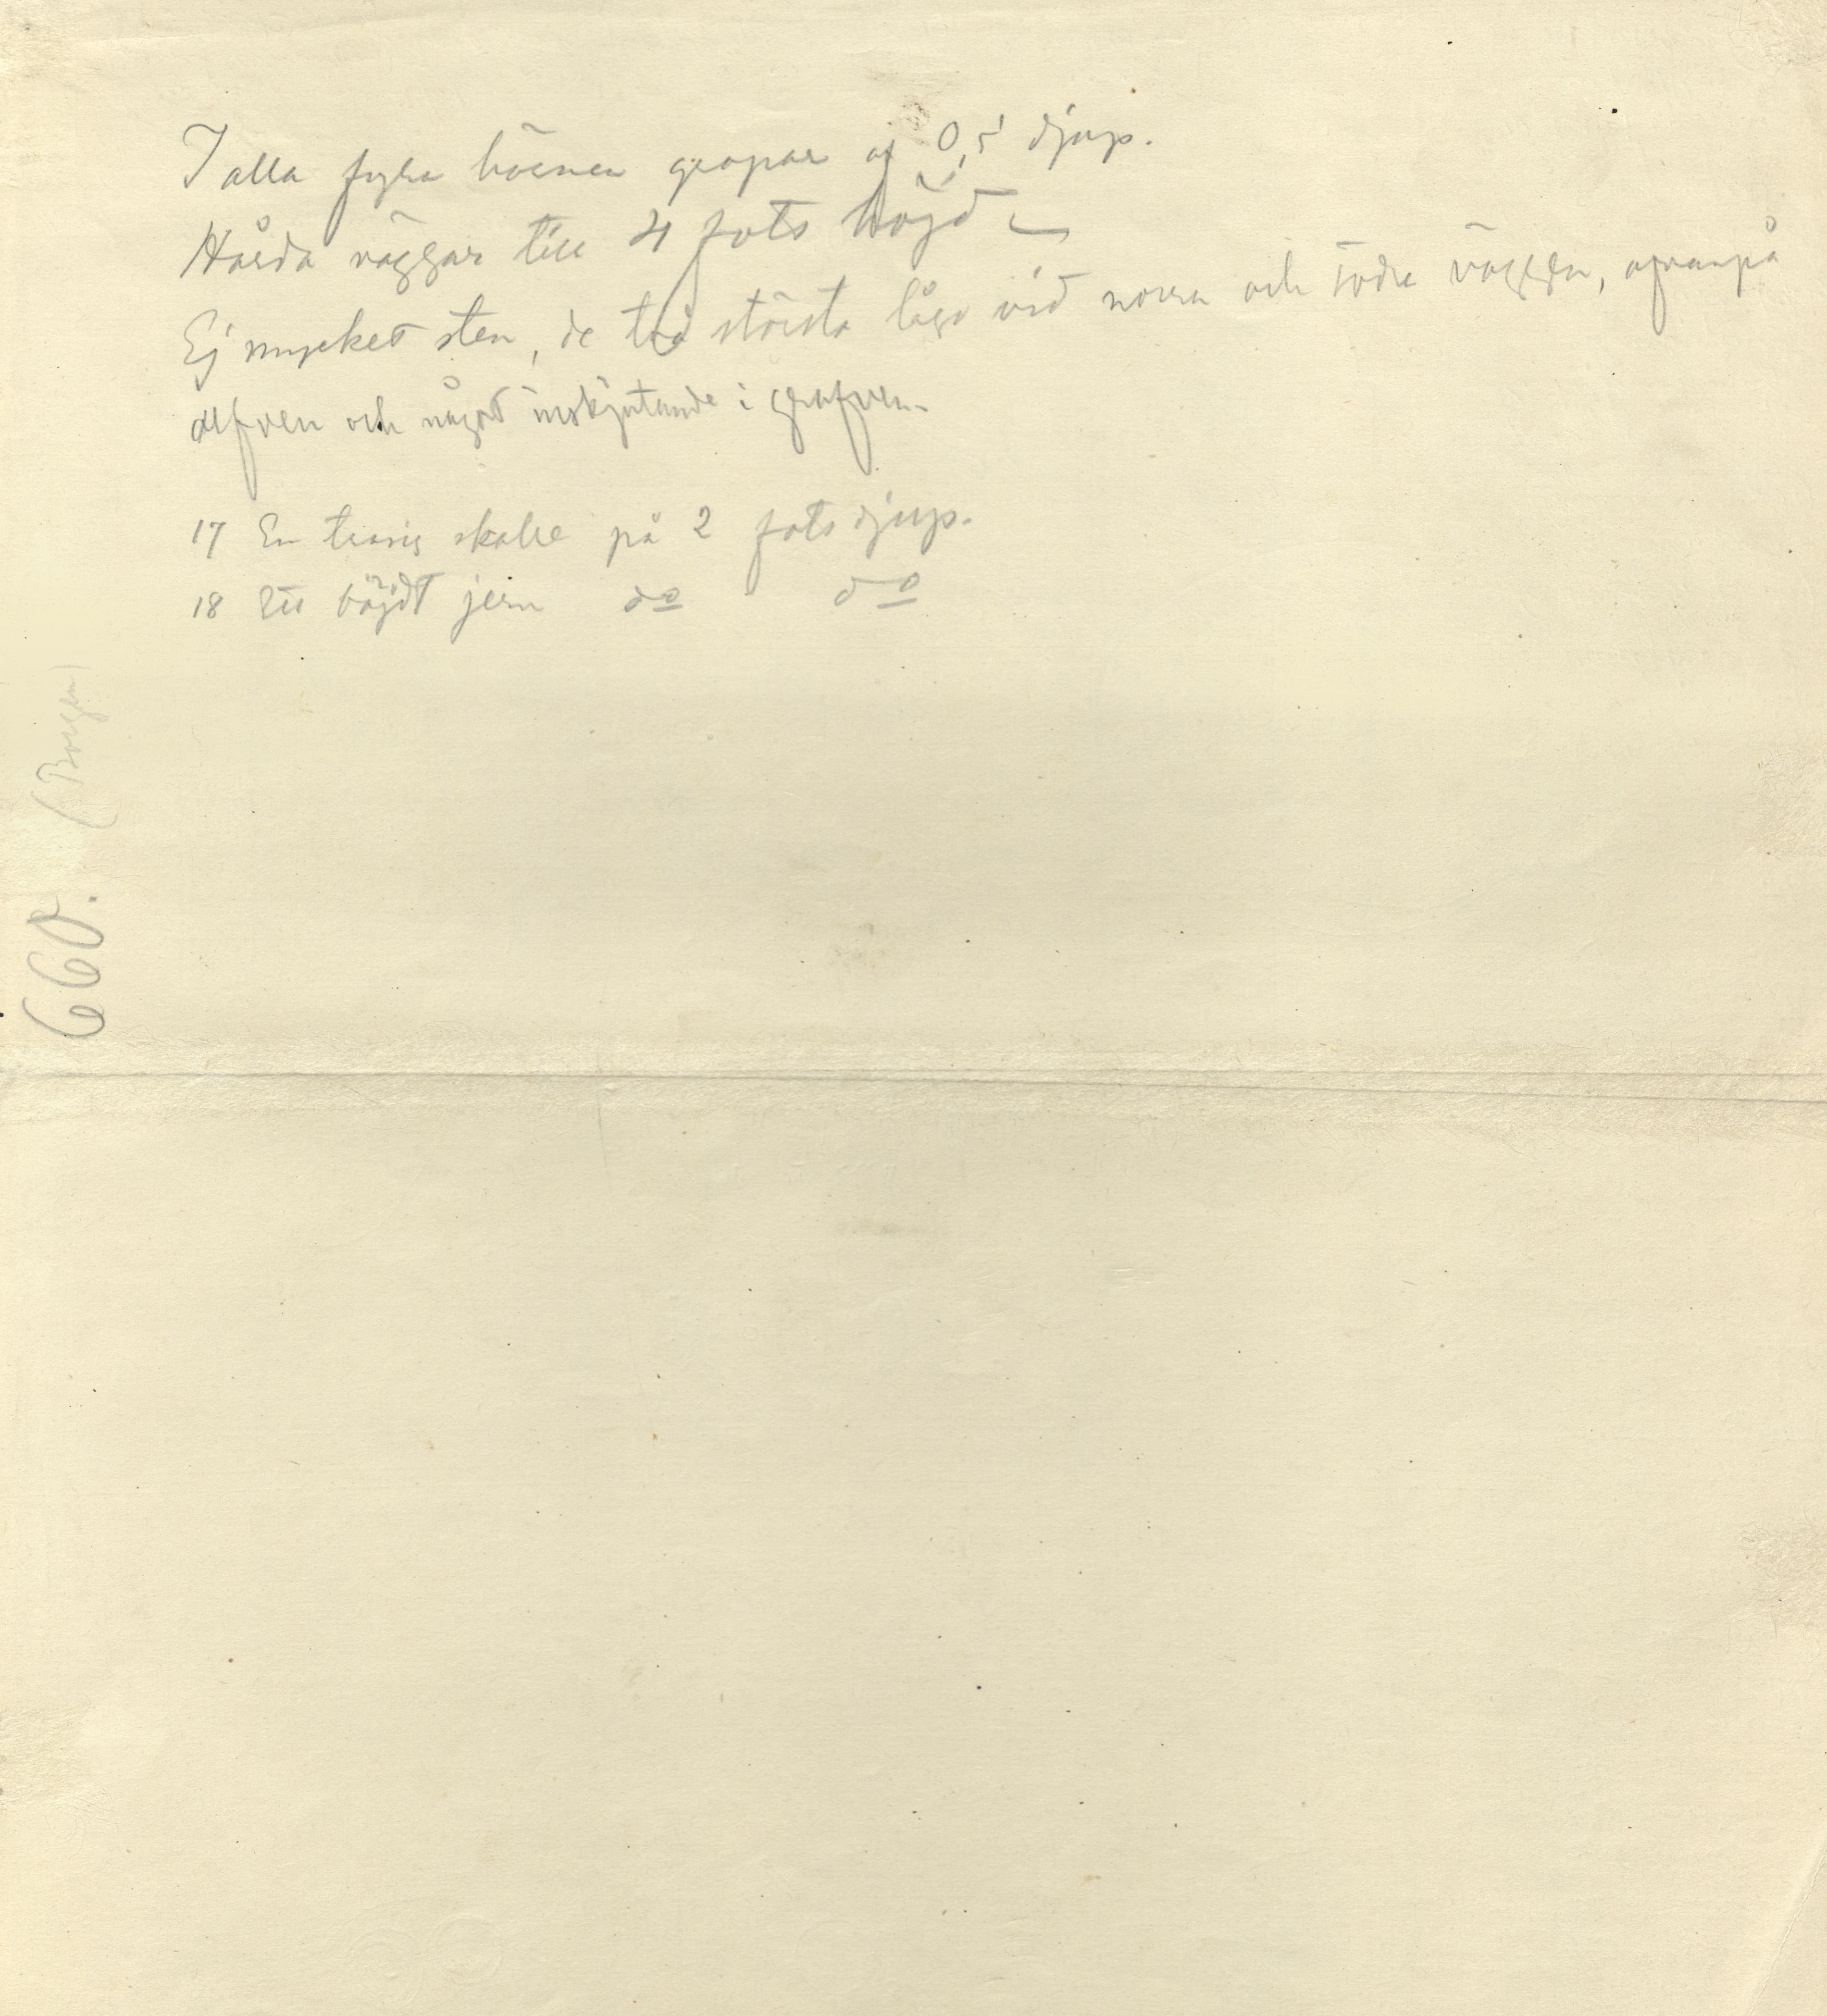 I alla fyra hörnen gropar af 0,5' djup.
Hårda väggar till 4 fots höjd
Ej mycket sten, de två största lågo vid norra och södra väggen, ofvanpå
alfven och något inskjutande i grafven.
17 En skalle på 2 fots djup.
18 Ett böjdt jern do do
660. (Borgen)